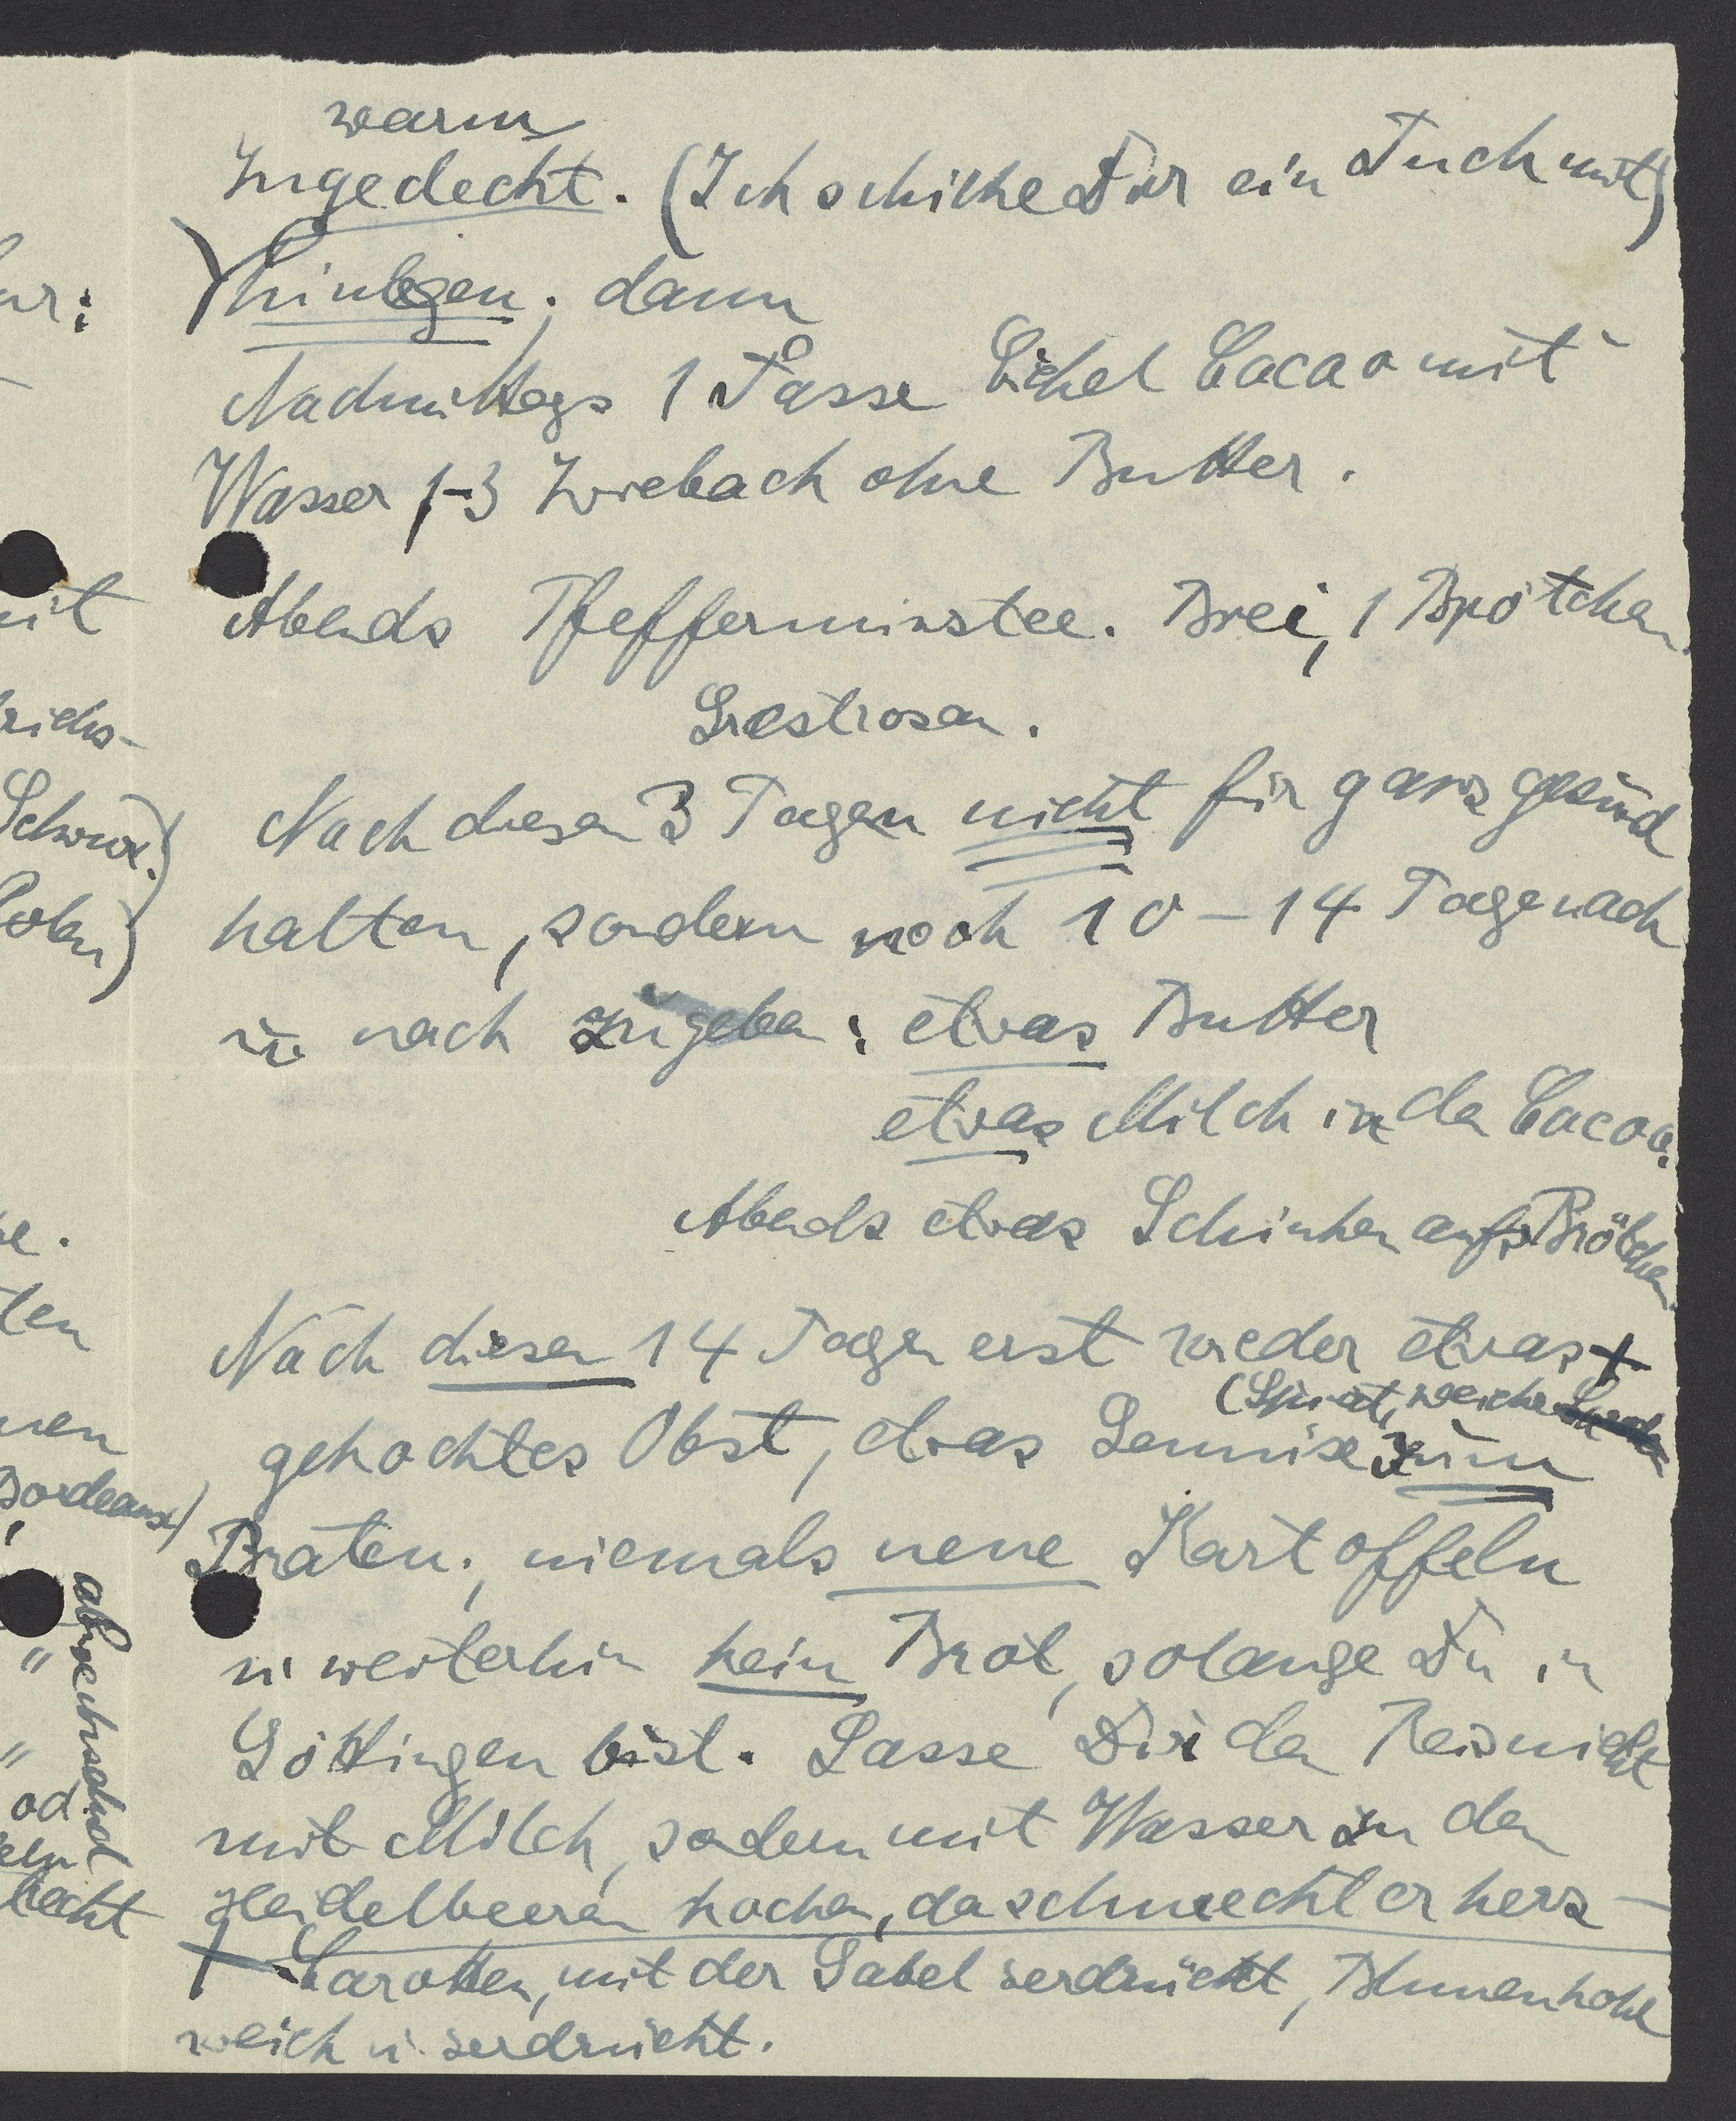 warm
zugedeckt. (Ich schicke Dir ein Tuch mit)
hinlegen; dann
Nachmittags 1 Tasse Eichel Cacao mit
Wasser 1-3 Zwieback ohne Butter.
Abends Pfefferminztee. Brei, 1 Brötchen
Nach diesen 3 Tagen nicht für ganz gesund
halten, sondern noch 10-14 Tage nach
u. nach zugeben: etwas Butter
etwas Milch in den Cacao.
Abends etwas Schinken aufs Brötchen
Nach diesen 14 Tagen erst wieder etwas +
(Spinat, weiche
gekochtes Obst, etwas Gemüse zum
Braten; niemals neue Kartoffeln
u. weiterhin kein Brot, solange Du in
Göttingen bist. Lasse Dir den Reis nicht
mit Milch, sondern mit Wasser zu den
Heidelbeeren kochen, da schmeckt er herz-
+ Carotten, mit der Gabel zerdrückt, Blumenkohl
weich u. zerdrückt.
ur:
mit
Schwarz.)
se.
ten
Bordeaux)
"
"
od.
abwechselnd